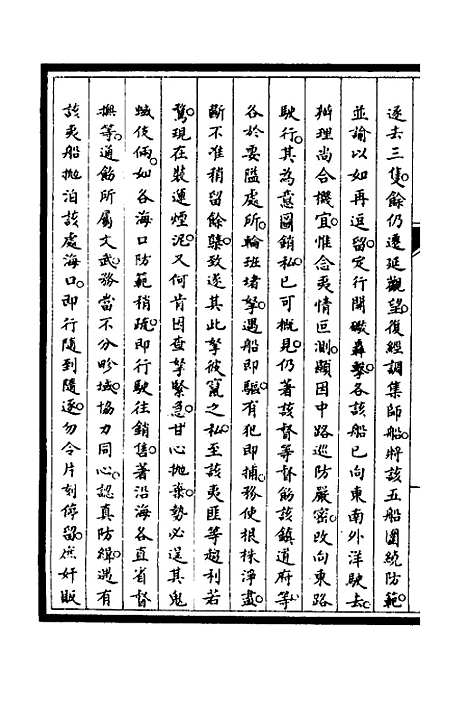 逐去三隻。餘仍遷延觀望。復經調集師船。將該五船圍繞防範。
並諭以如再逗留。定行開礮轟擊。各該船已向東南外洋駛去。
辦理尚合機宜。惟念夷情叵測。顯因中路巡防嚴密。改向東路
駛行。其為意圖銷私。已可概見。仍著該督等督飭該鎮道府等。
各於要隘處所。輪班堵拏。遇船即驅。有犯即捕。務使根株淨盡。
斷不准稍留餘孽。致遂其此拏彼竄之私。至該夷匪等趨利若
鶩。現在裝運煙泥。又何肯因查拏緊急。甘心拋棄。勢必逞其鬼
蜮伎倆。如各海口防範稍疏。即行駛往銷售。著沿海各直省督
撫等。通飭所屬文武。務當不分畛域。協力同心。認真防緝。遇有
該夷船拋泊該處海口。即行隨到隨逐。勿令片刻停留。庶奸販